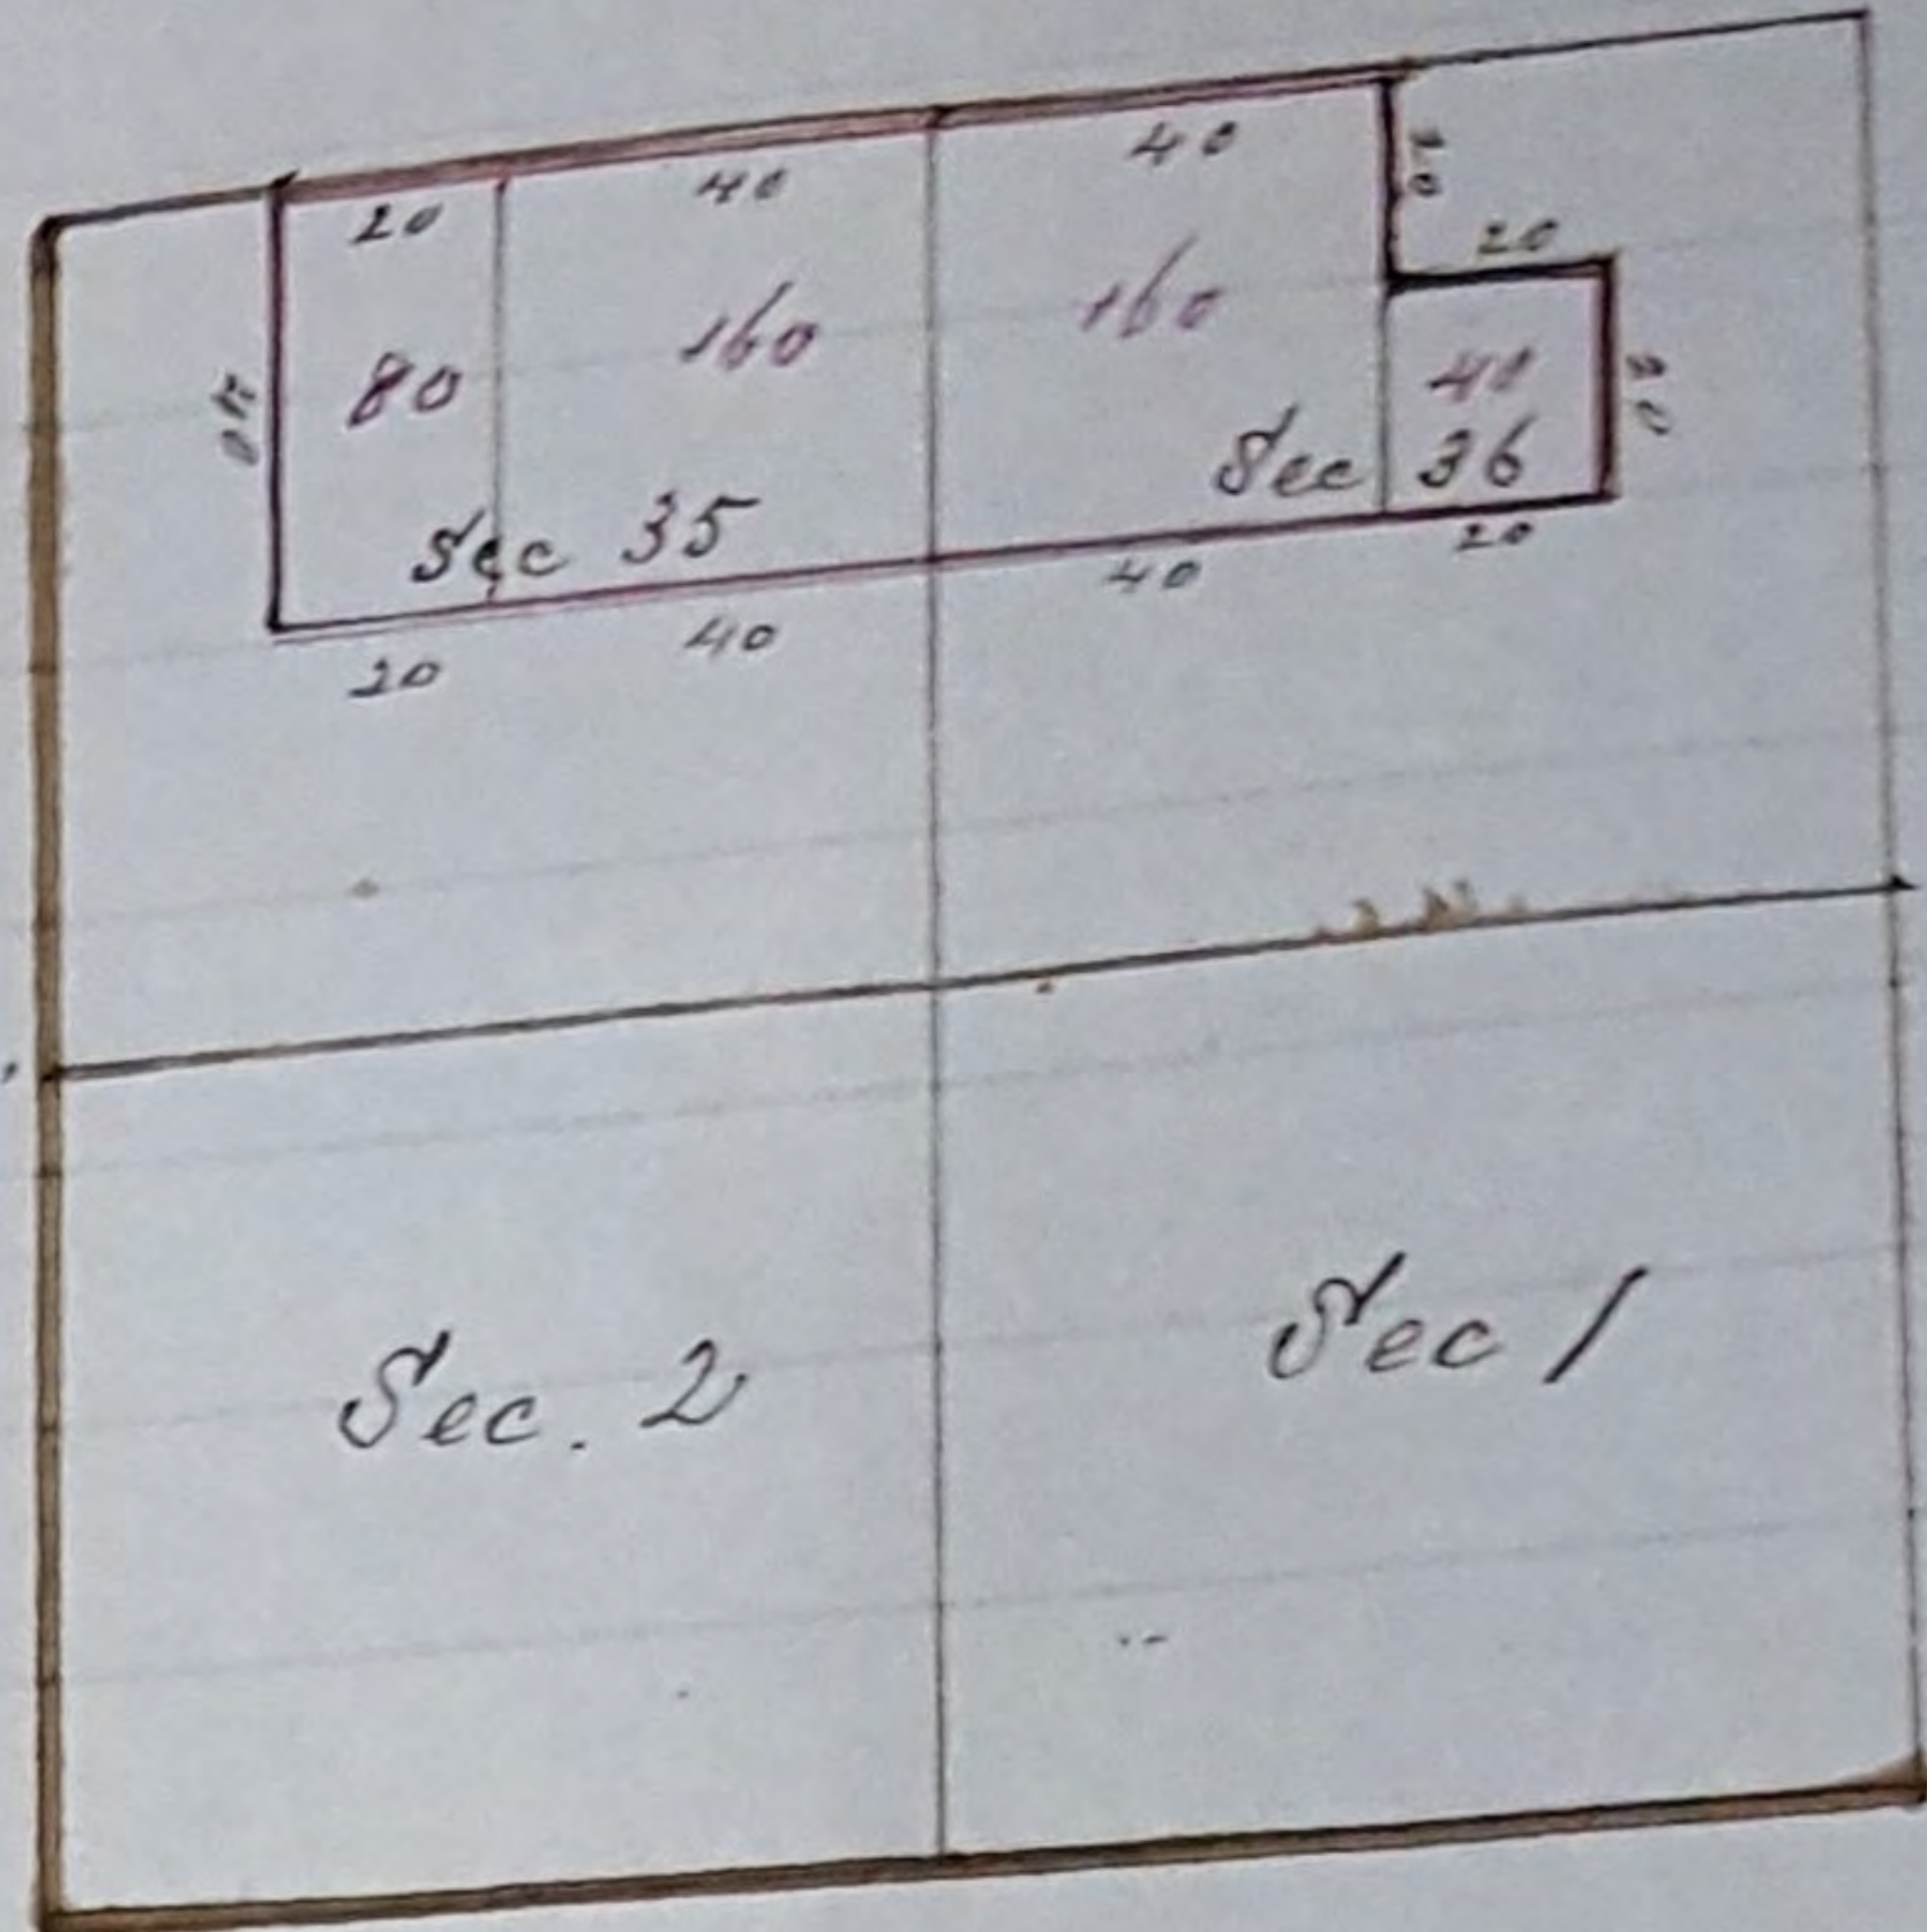 20 40 40 20
20
40 80 160 160 40 20
Sec 35 Sec 36
20 40 40 20
Sec. 2 Sec 1